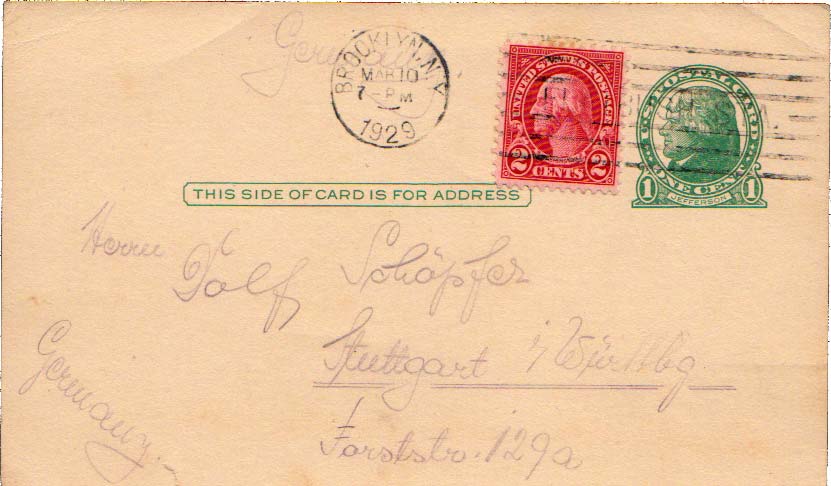 Germany
BROOKLYN, N.Y.
MAR 10
7-PM
1929
UNITED STATES POSTAGE
2 CENTS 2
U.S. POSTAL CARD
1 ONE CENT 1
JEFFERSON
THIS SIDE OF CARD IS FOR ADDRESS
Herrn
Dolf Schöpfer
Stuttgart i/Württbg
Germany.
Forststr. 129a